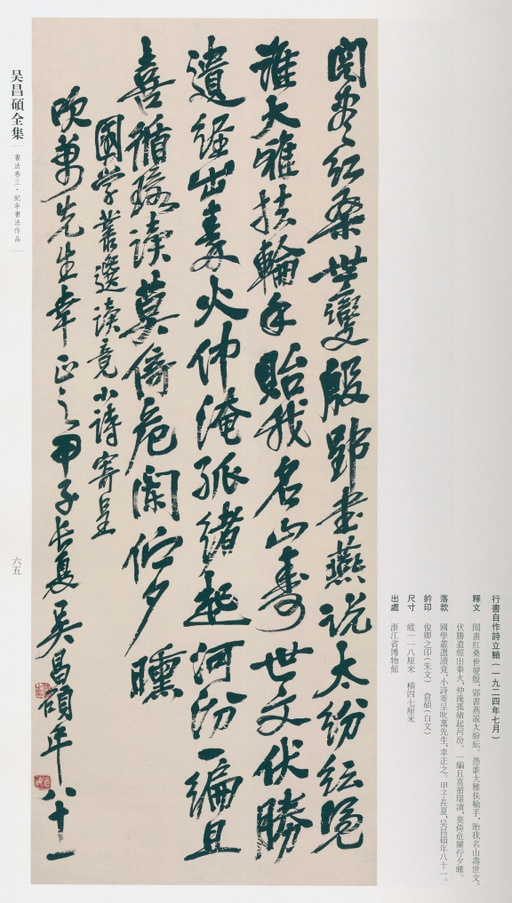 行書自作詩立軸（一九二四年七月）
釋文 閱盡紅桑世變殷，郢書燕說太紛紜。憑誰大雅扶輪手，貽我名山壽世文。
伏勝遺經出秦火，仲淹孤緒起河汾。一編且喜循環讀，莫倚危闌佇夕曛。
落款 國學叢選讀竟，小詩寄呈吹萬先生，幸正之。甲子長夏，吳昌碩年八十一。
鈐印 俊卿之印（朱文） 倉碩（白文）
尺寸 縱一一八厘米 橫四七厘米
出處 浙江省博物館
閱盡紅桑世變殷郢書燕說太紛紜憑
誰大雅扶輪手貽我名山壽世文伏勝
遺經出秦火仲淹孤緒起河汾一編且
喜循環讀莫倚危闌佇夕曛
國學叢選讀竟小詩寄呈
吹萬先生幸正之甲子長夏吳昌碩年八十一
吴昌碩全集
書法卷三·紀年書法作品
六五